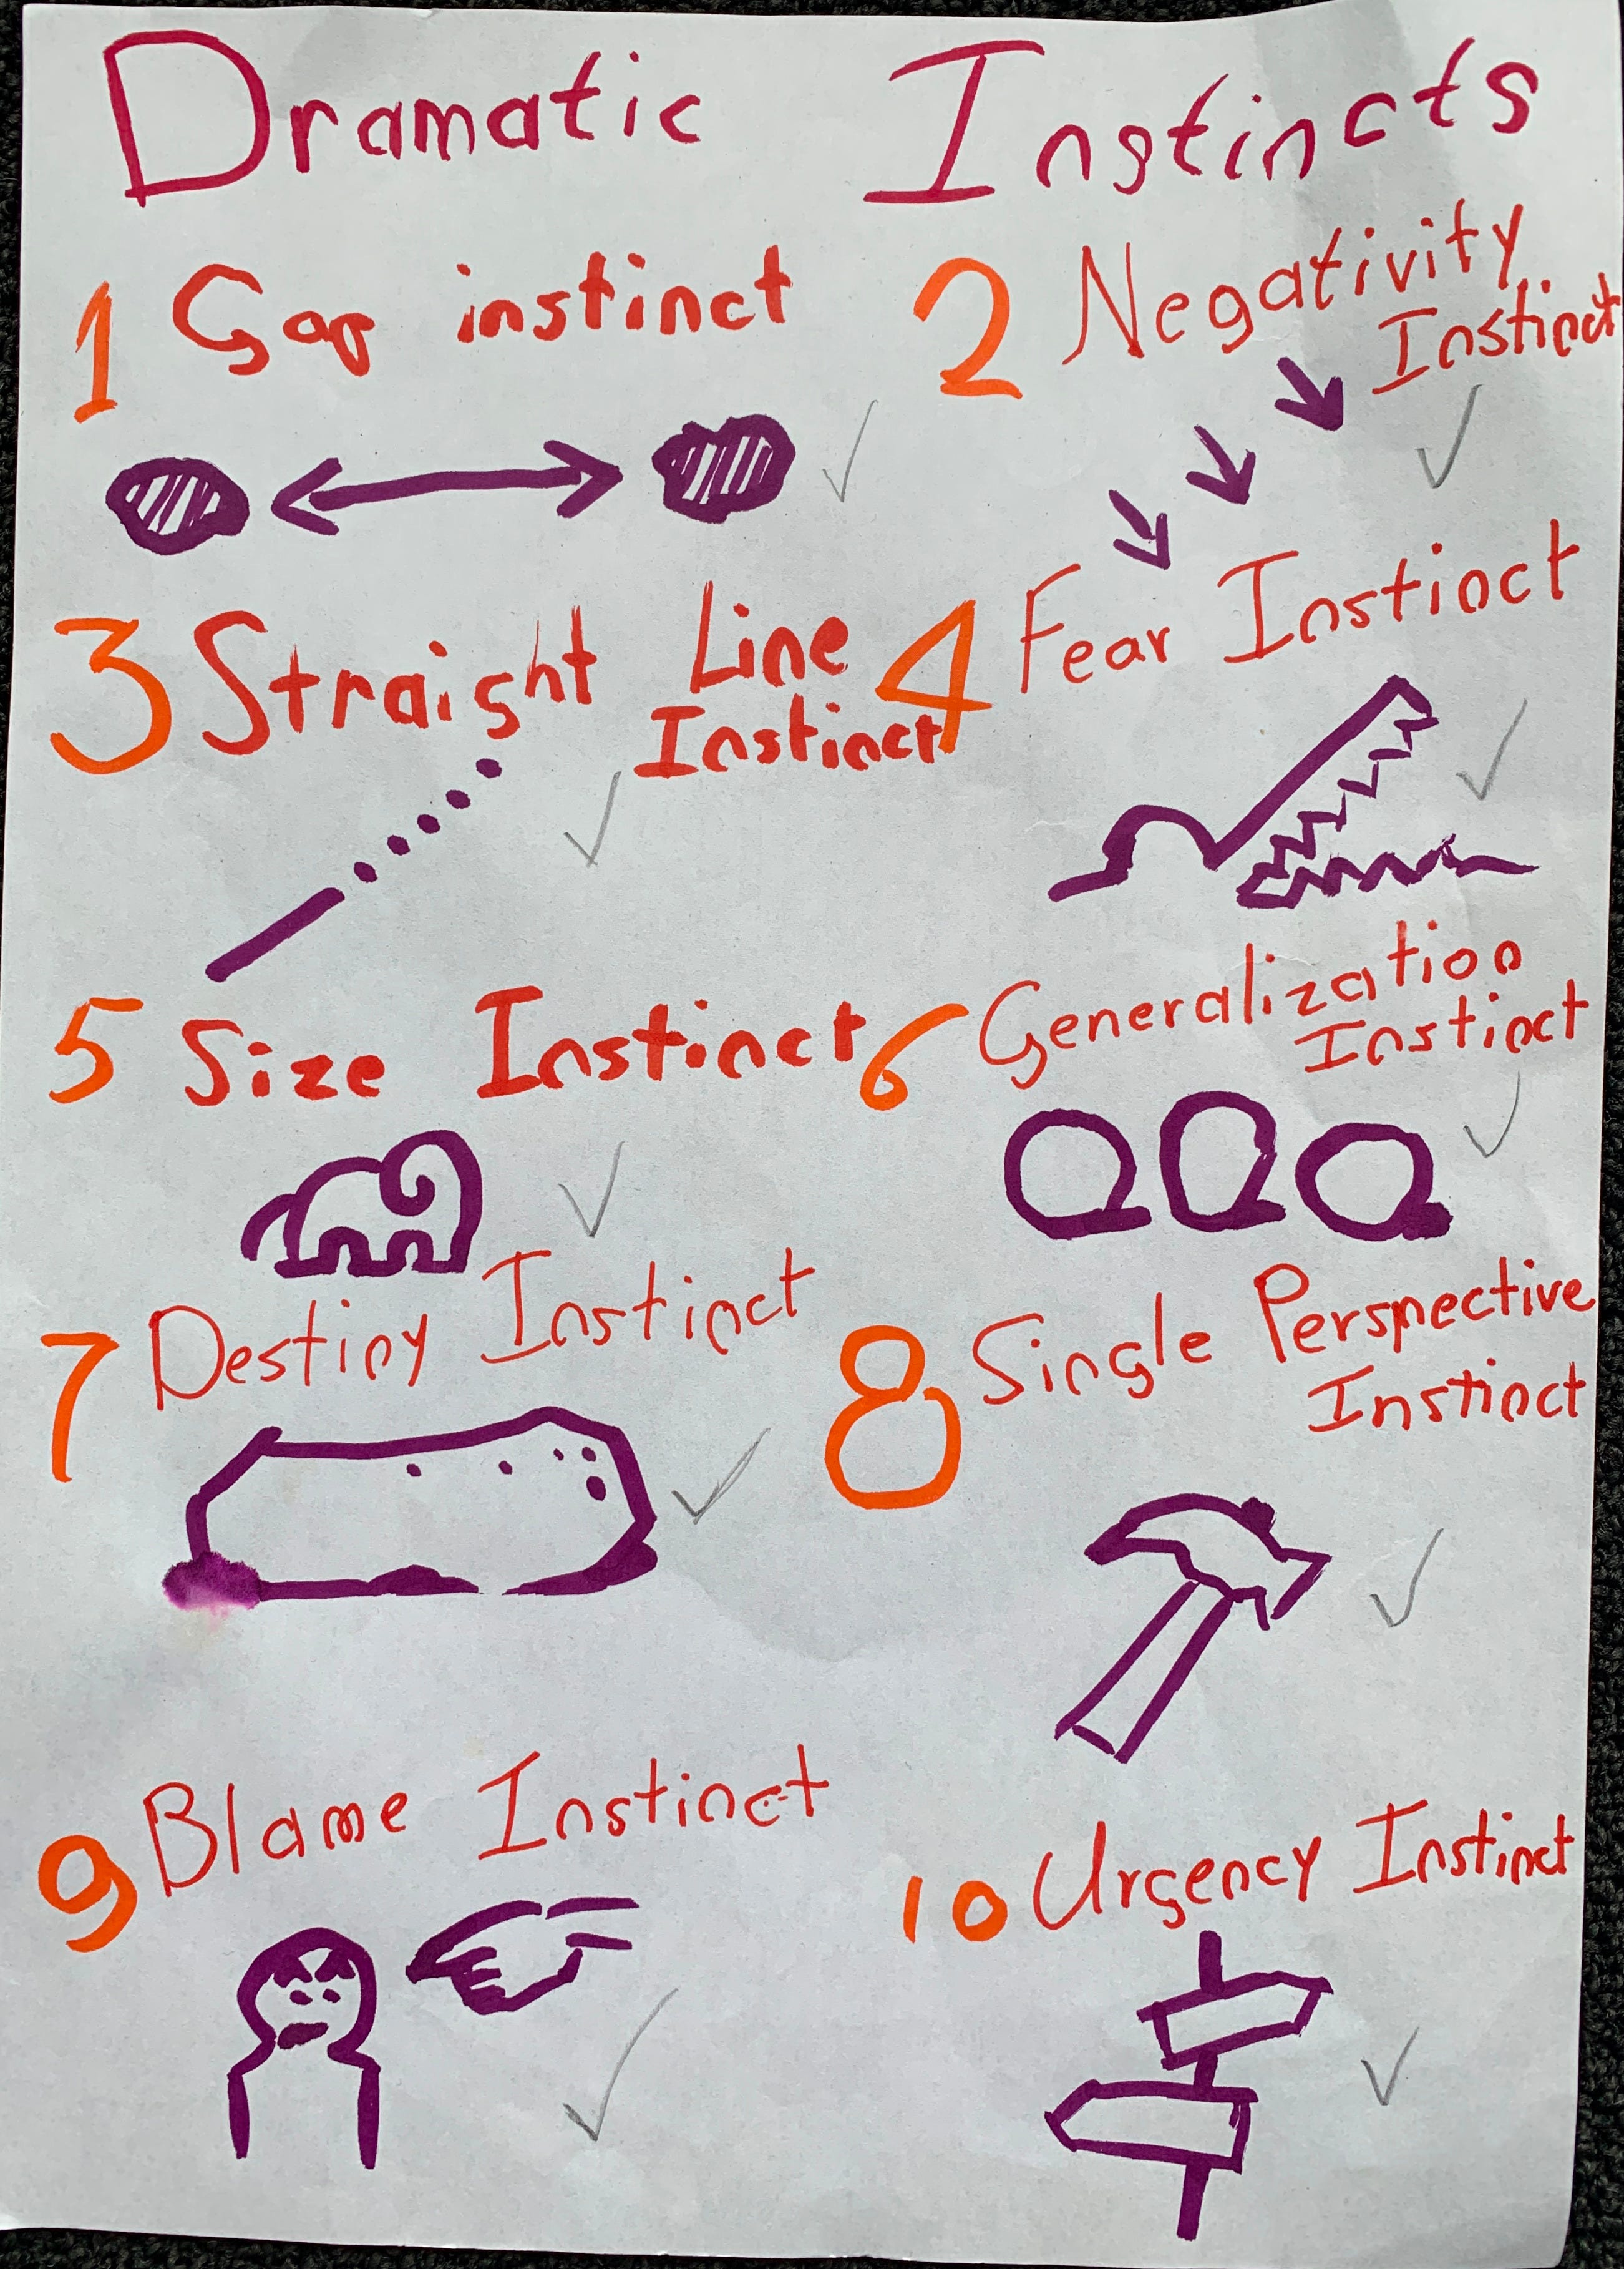 Dramatic Instincts
1 Gap instinct
2 Negativity
Instinct
3 Straight Line
Instinct
4 Fear Instinct
5 Size Instinct
6 Generalization
Instinct
7 Destiny Instinct
8 Single Perspective
Instinct
9 Blame Instinct
10 Urgency Instinct